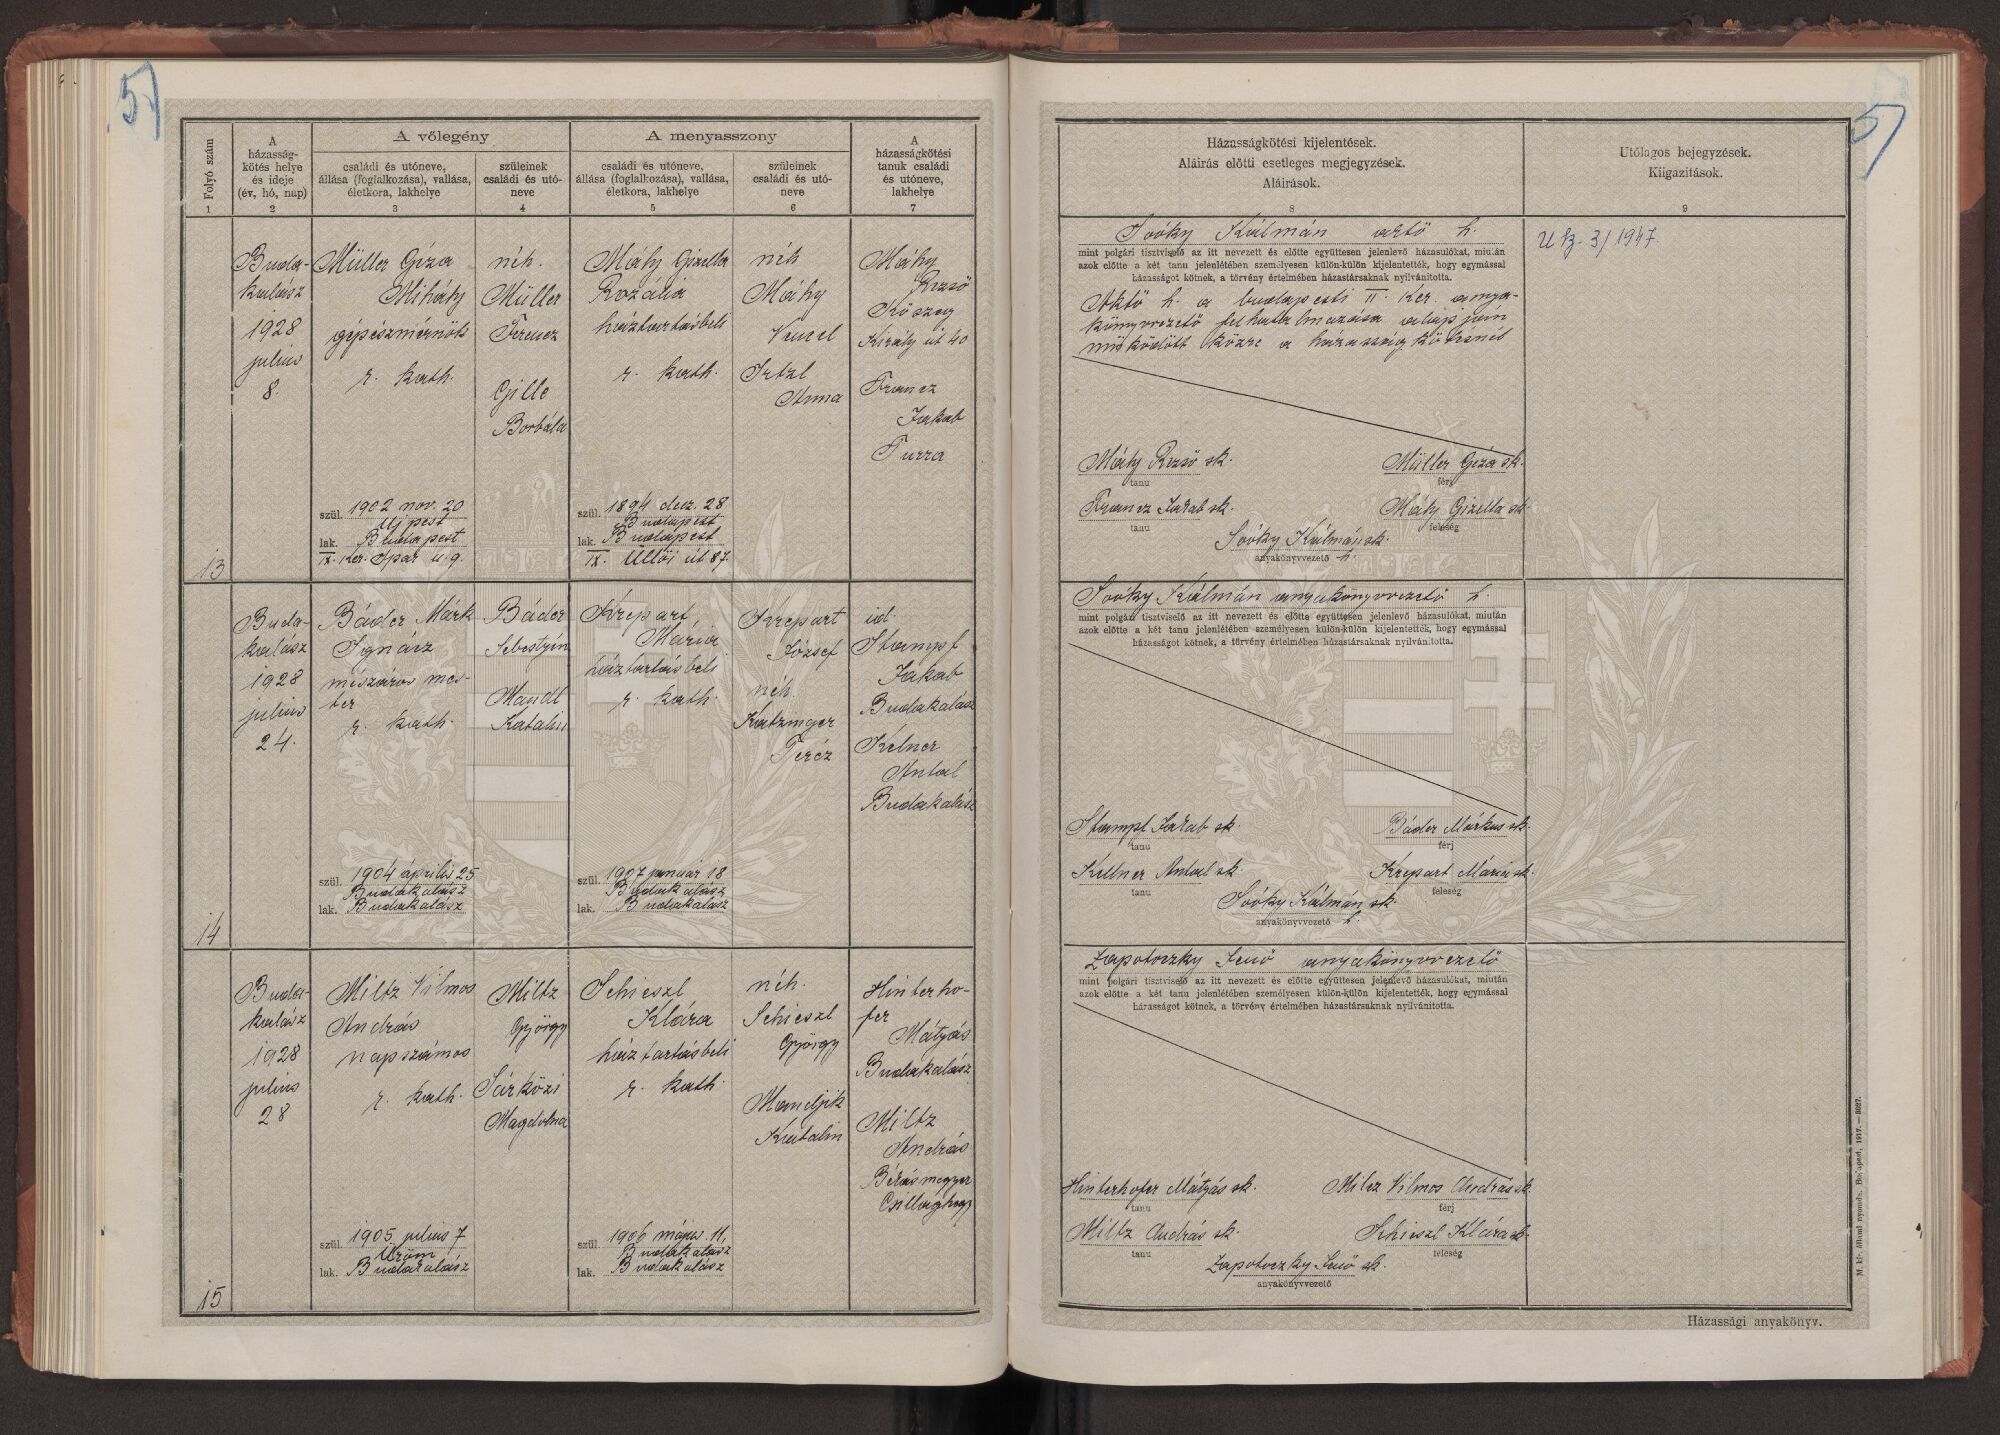 5
Folyó szám
1
A
házasság-
kötés helye
és ideje
(év, hó, nap)
2
A vőlegény
családi és utóneve,
állása (foglalkozása), vallása,
életkora, lakhelye
3
szüleinek
családi és utó-
neve
4
A menyasszony
családi és utóneve,
állása (foglalkozása), vallása,
életkora, lakhelye
5
szüleinek
családi és utó-
neve
6
A
házasságkötési
tanuk családi
és utóneve,
lakhelye
7
13
Buda-
kalász
1928
julius
8.
Müller Géza
Mihály
gépészmérnök
r. kath.
szül. 1902 nov. 20
Ujpest
lak. Budapest
IX. ker. Ipar u. 9.
néh.
Müller
Ferencz
Gille
Borbála
Máhy Gizella
Rozália
háztartásbeli
r. kath.
szül. 1894 dec. 28
Budapest
lak. Budapest
IX. Üllői út 87.
néh
Máhy
Vencel
Irtzl
Anna
Máhy
Rezső
Kőszeg
Király út 40
Francz
Jakab
Turra
14
Buda-
kalász
1928
julius
24.
Báder Márk
Ignácz
mészáros mes-
ter
r. kath.
szül. 1904 április 25
Budakalász
lak. Budakalász
Báder
Sebestyén
Mandl
Katalin
Krepart
Mária
háztartásbeli
r. kath.
szül. 1907 január 18
Budakalász
lak. Budakalász
Krepart
József
néh.
Katzinger
Teréz
id.
Stampf
Jakab
Budakalász
Kelner
Antal
Budakalász
15
Buda-
kalász
1928
julius
28
Miltz Vilmos
András
napszámos
r. kath.
szül. 1905. julius 7
Üröm
lak. Budakalász
Miltz
György
Sárközi
Magdolna
Schieszl
Klára
háztartásbeli
r. kath.
szül. 1906 május 11,
Budakalász
lak. Budakalász
néh.
Schieszl
György
Mandjik
Katalin
Hinterho-
fer
Mátyás
Budakalász
Miltz
András
Békásmegyer
Csillaghegy
5
Házasságkötési kijelentések.
Aláírás előtti esetleges megjegyzések.
Aláírások.
8
Utólagos bejegyzések.
Kiigazítások.
9
Soóky Kálmán aktő h.
mint polgári tisztviselő az itt nevezett és előtte együttesen jelenlevő házasulókat, miután
azok előtte a két tanu jelenlétében személyesen külön-külön kijelentették, hogy egymással
házasságot kötnek, a törvény értelmében házastársaknak nyilvánította.
Aktő h. a budapesti II. ker. anya-
könyvvezető felhatalmazása alapján
működött közre a házasság kötésnél
Máhy Rezső sk.
tanu
Müller Géza sk.
férj
Francz Jakab sk.
tanu
Máhy Gizella sk.
feleség
Soóky Kálmán sk.
anyakönyvvezető h.
U k. 3/1947
Soóky Kálmán anyakönyvvezető h.
mint polgári tisztviselő az itt nevezett és előtte együttesen jelenlevő házasulókat, miután
azok előtte a két tanu jelenlétében személyesen külön-külön kijelentették, hogy egymással
házasságot kötnek, a törvény értelmében házastársaknak nyilvánította.
Stampf Jakab sk.
tanu
Báder Márkus sk.
férj
Kellner Antal sk.
tanu
Krepart Mária sk.
feleség
Soóky Kálmán sk.
anyakönyvvezető h.
Zapotoczky Jenő anyakönyvvezető
mint polgári tisztviselő az itt nevezett és előtte együttesen jelenlevő házasulókat, miután
azok előtte a két tanu jelenlétében személyesen külön-külön kijelentették, hogy egymással
házasságot kötnek, a törvény értelmében házastársaknak nyilvánította.
Hinterhofer Mátyás sk.
tanu
Milcz Vilmos András sk.
férj
Miltz András sk.
tanu
Schieszl Klára sk.
feleség
Zapotoczky Jenő sk.
anyakönyvvezető
M. kir. állami nyomda. Budapest, 1917. — 3027.
Házassági anyakönyv.